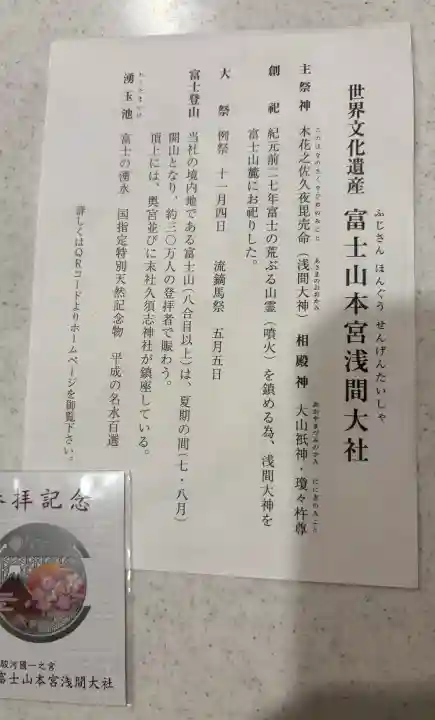 世界文化遺産 富士山本宮浅間大社
ふじさん ほんぐう せんげんたいしゃ
主祭神 木花之佐久夜毘売命（浅間大神） 相殿神 大山祇神・瓊々杵尊
このはなのさくやひめのみこと あさまのおおかみ おおやまづみのかみ ににぎのみこと
創祀 紀元前二七年富士の荒ぶる山霊（噴火）を鎮める為、浅間大神を
富士山麓にお祀りした。
大祭 例祭 十一月四日 流鏑馬祭 五月五日
富士登山 当社の境内地である富士山（八合目以上）は、夏期の間（七・八月）
開山となり、約三〇万人の登拝者で賑わう。
頂上には、奥宮並びに末社久須志神社が鎮座している。
湧玉池 富士の湧水 国指定特別天然記念物 平成の名水百選
わくたまいけ
詳しくはQRコードよりホームページを御覧下さい。
拝記念
駿河國一之宮
富士山本宮浅間大社